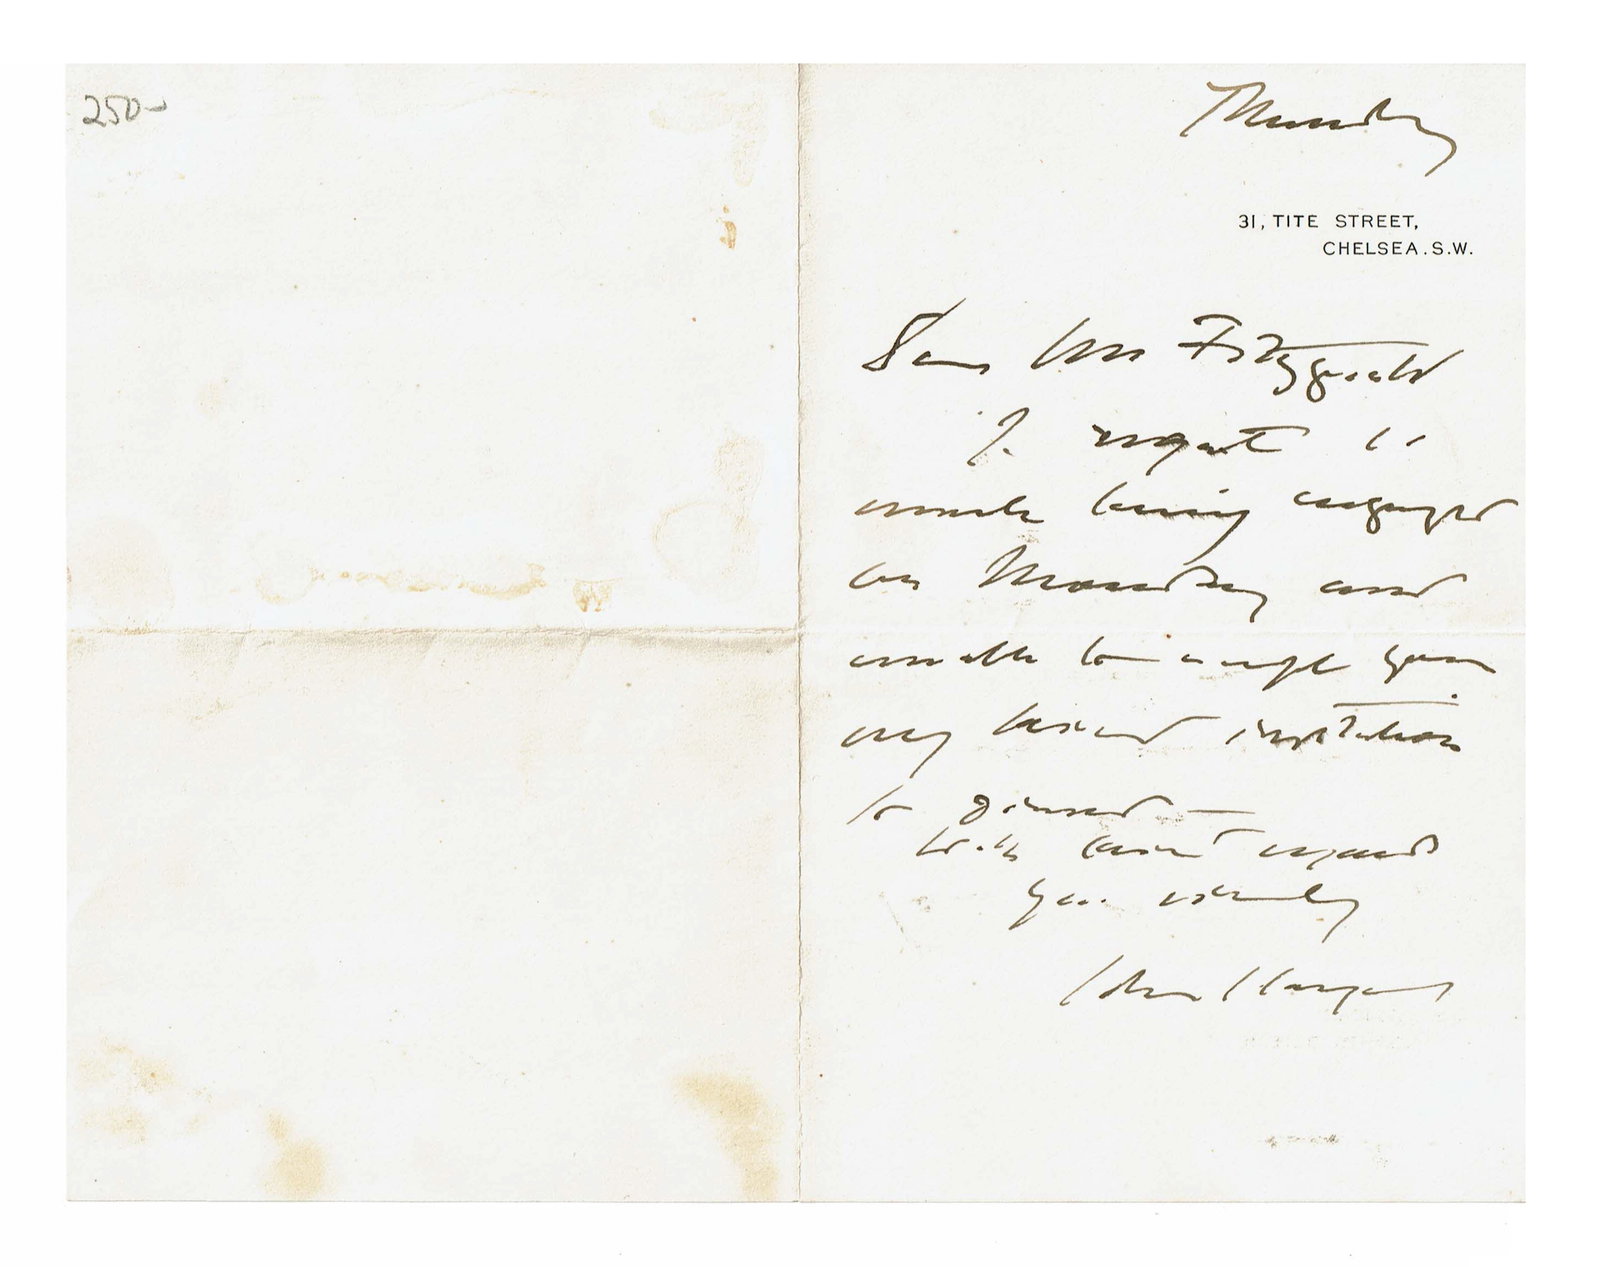 250-
Thursday
31, TITE STREET,
CHELSEA. S.W.
Dear Mrs Fitzgerald
I regret so
much being engaged
on Monday and
unable to accept your
very kind invitation
to dinner
With kind regards
yours sincerely
John Sargent